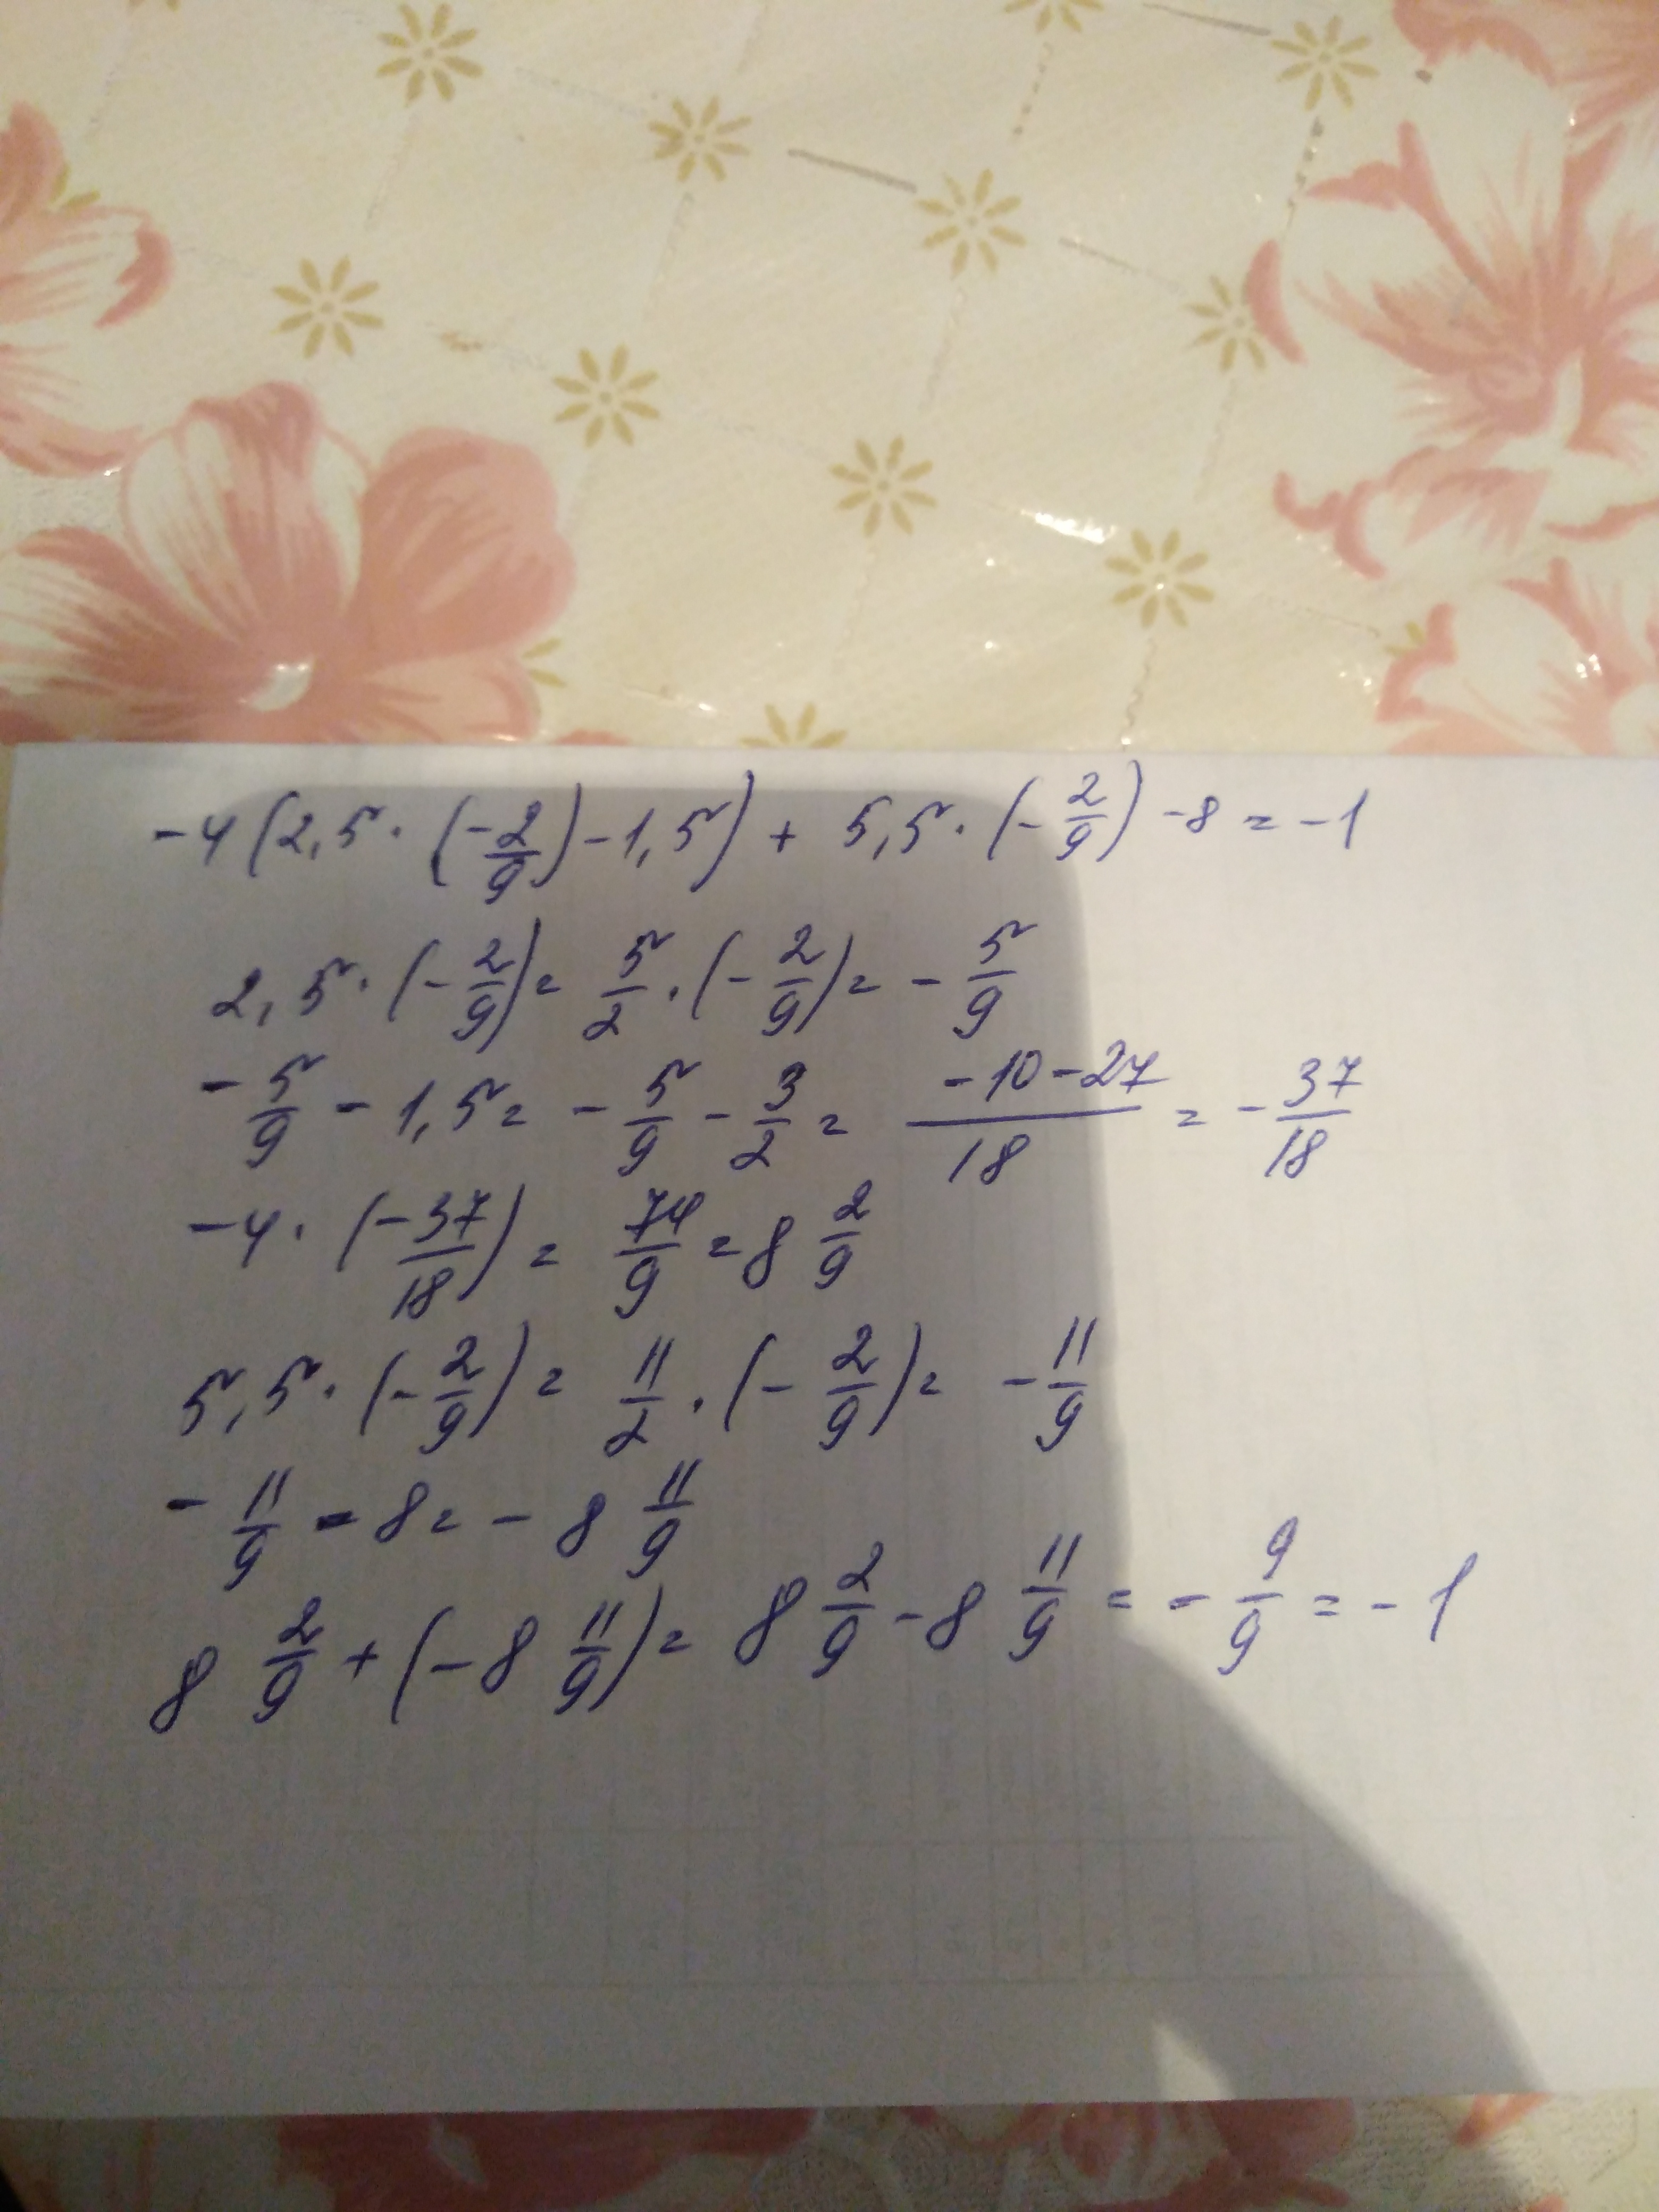 -4(2,5·(-2/9)-1,5) + 5,5·(-2/9)-8=-1
2,5·(-2/9)=5/2·(-2/9)=-5/9
-5/9-1,5=-5/9-3/2=(-10-27)/18=-37/18
-4·(-37/18)=74/9=8 2/9
5,5·(-2/9)=11/2·(-2/9)=-11/9
-11/9-8=-8 11/9
8 2/9+(-8 11/9)=8 2/9-8 11/9=-9/9=-1